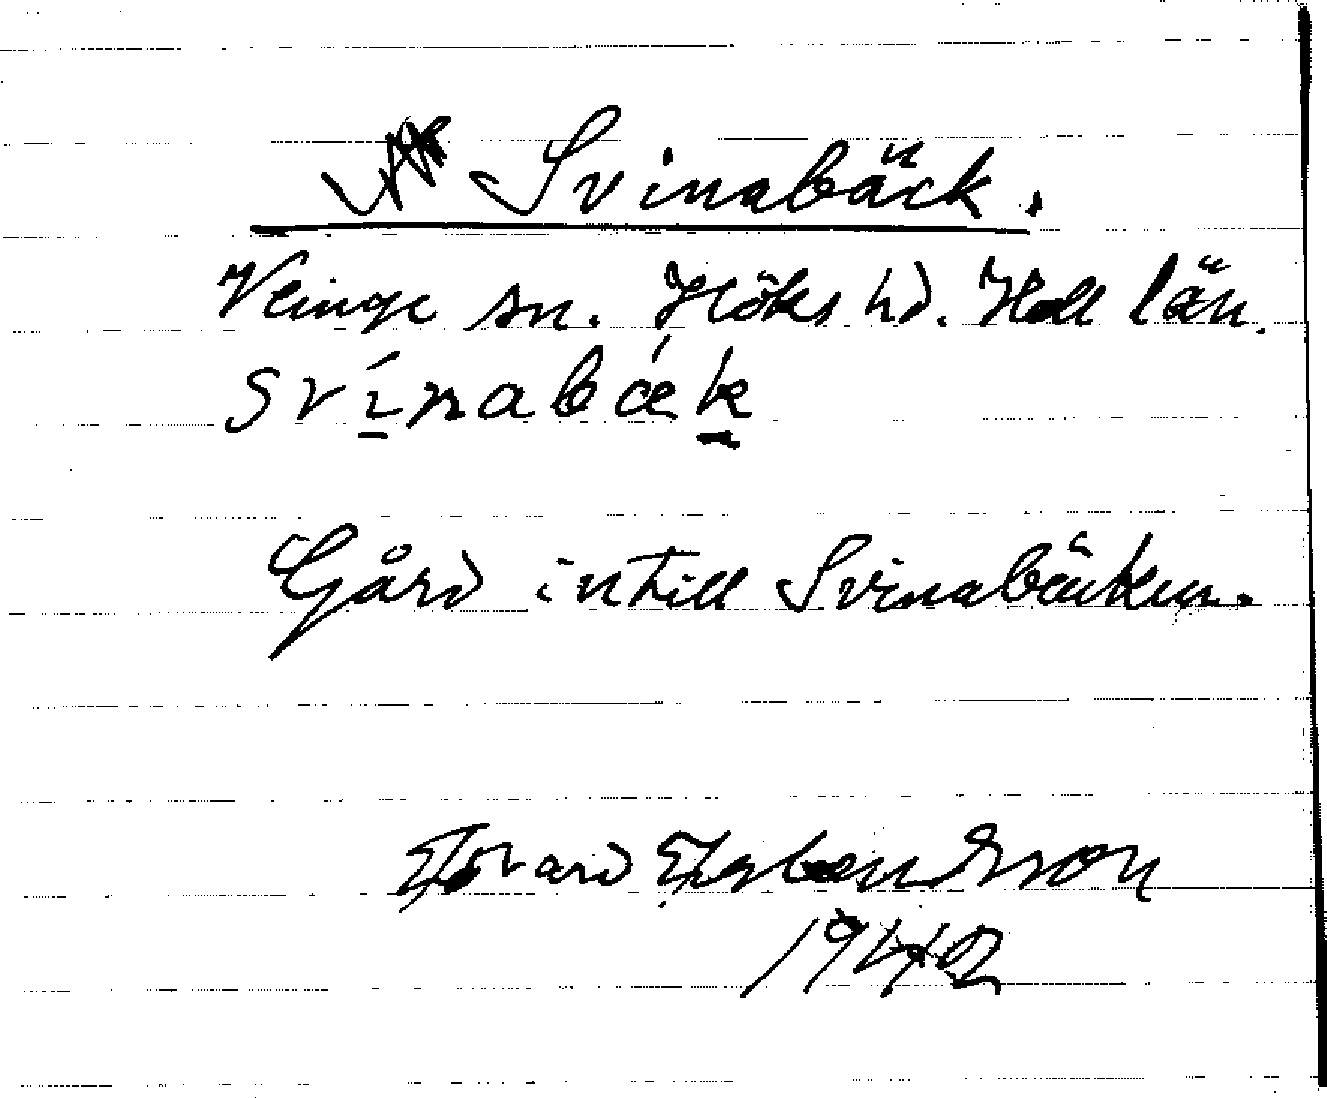 Svinabäck.
Veinge sn. Höks hd. Hall län.
svínabǽk
Gård intill Svinabäcken.
Edvard
1942